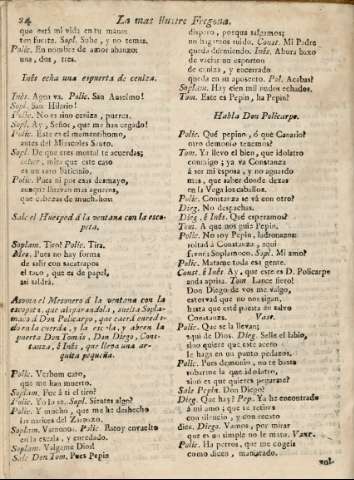 24 La mas ilustre Fregona.
que está mi vida en tu mano
ten fuerte. Sopl. Sube, y no temas.
Polic. En nombre de amor abanzo:
una, dos, tres.
Inés echa una espuerta de ceniza.
Inés. Agua va. Polic. San Anselmo!
Sopl. San Hilario!
Polic. No es sino ceniza, puerca.
Sopl. Ay, Señor, que me han cegado!
Polic. Este es el mementohomo,
antes del Miercoles Santo.
Sopl. De que eres mortal te acuerdas;
señor, mira que este caso
es un caso
Polic. Pues ni por esas desmayo,
aunque lluevan mas agueros,
que cabezas de muchachos.
Sale el Huesped á la ventana con la escopeta.
Soplam. Tiro? Polic. Tira.
Pues no hay forma
de salir con sacatrapos
el taco, que es de papel,
asi saldrá.
Asoma el Mesonero á la ventana con la
escopeta, que disparandola, suelta Soplamoco
á Don Policarpo, que caerá enredado
en la cuerda, y la escala, y abren la
puerta Don Tomás, Don Diego, Constanza,
é Inés, que lleva una arquita
pequeña.
Polic. Verbum caro,
que me han muerto.
Soplam. Fue á ti el tiro?
Polic. Yo la va. Sopl. Sientes algo?
Polic. Y mucho, que me ha deshecho
las narices del
Soplam. Vamonos. Polic. Estoy envuelto
en la escala, y enredado.
Soplam. Valgame Dios!
Sale Don Tom. Pues Pepin
disparo, porque salgamos;
no hagamos ruido. Const. Mi Padre
queda durmiendo. Inés. Ahora baxo
de vaciar un esporton
de ceniza, y encerrado
queda en su aposento. Pol. Acabas?
Soplam. Hay cien mil nudos echados.
Tom. Este es Pepin, ha Pepin?
Habla Don Policarpo.
Polic. Qué pepino, ó que Canario?
otro demonio tenemos?
Tom. Ya llevo el bien, que idolatro
conmigo; ya va Constanza
á ser mi esposa, y no aguardo
mas, que saber donde dexas
en la Vega los caballos.
Polic. Constanza se vá con otro?
Dieg. No despachas.
Dieg. é Inés. Qué esperamos?
Tom. A que nos guie Pepin.
Polic. No soy Pepin, ladronazos:
soltad á Constanza, aqui
frente Soplamocos. Sopl. Mi amo?
Polic. Matame toda esa gente.
Const. é Inés Ay, que este es D. Policarpo
anda aprisa. Tom Lance fiero!
Don Diego de vos me valgo,
estorvad que no nos sigan,
hasta que esté puesta en salvo
Constanza. Vase.
Polic. Que se la llevan;
aqui de Dios. Dieg. Selle el labio,
sino quiere que este acero
le haga en un punto pedazos.
Polic. Pues demonio, no te basta
robarme la que idolatro,
sino es que quieres pegarme?
Sale Pepin. Don Diego?
Dieg. Que hay? Pep. Ya he encontrado
á mi amo; que se retira
con silencio, y con recato
dice. Diego. Vamos, por mirar
que es un simple no le mato. Vase.
Polic. Ha perros, que me cogeis
como dicen, maniatado.
vol-